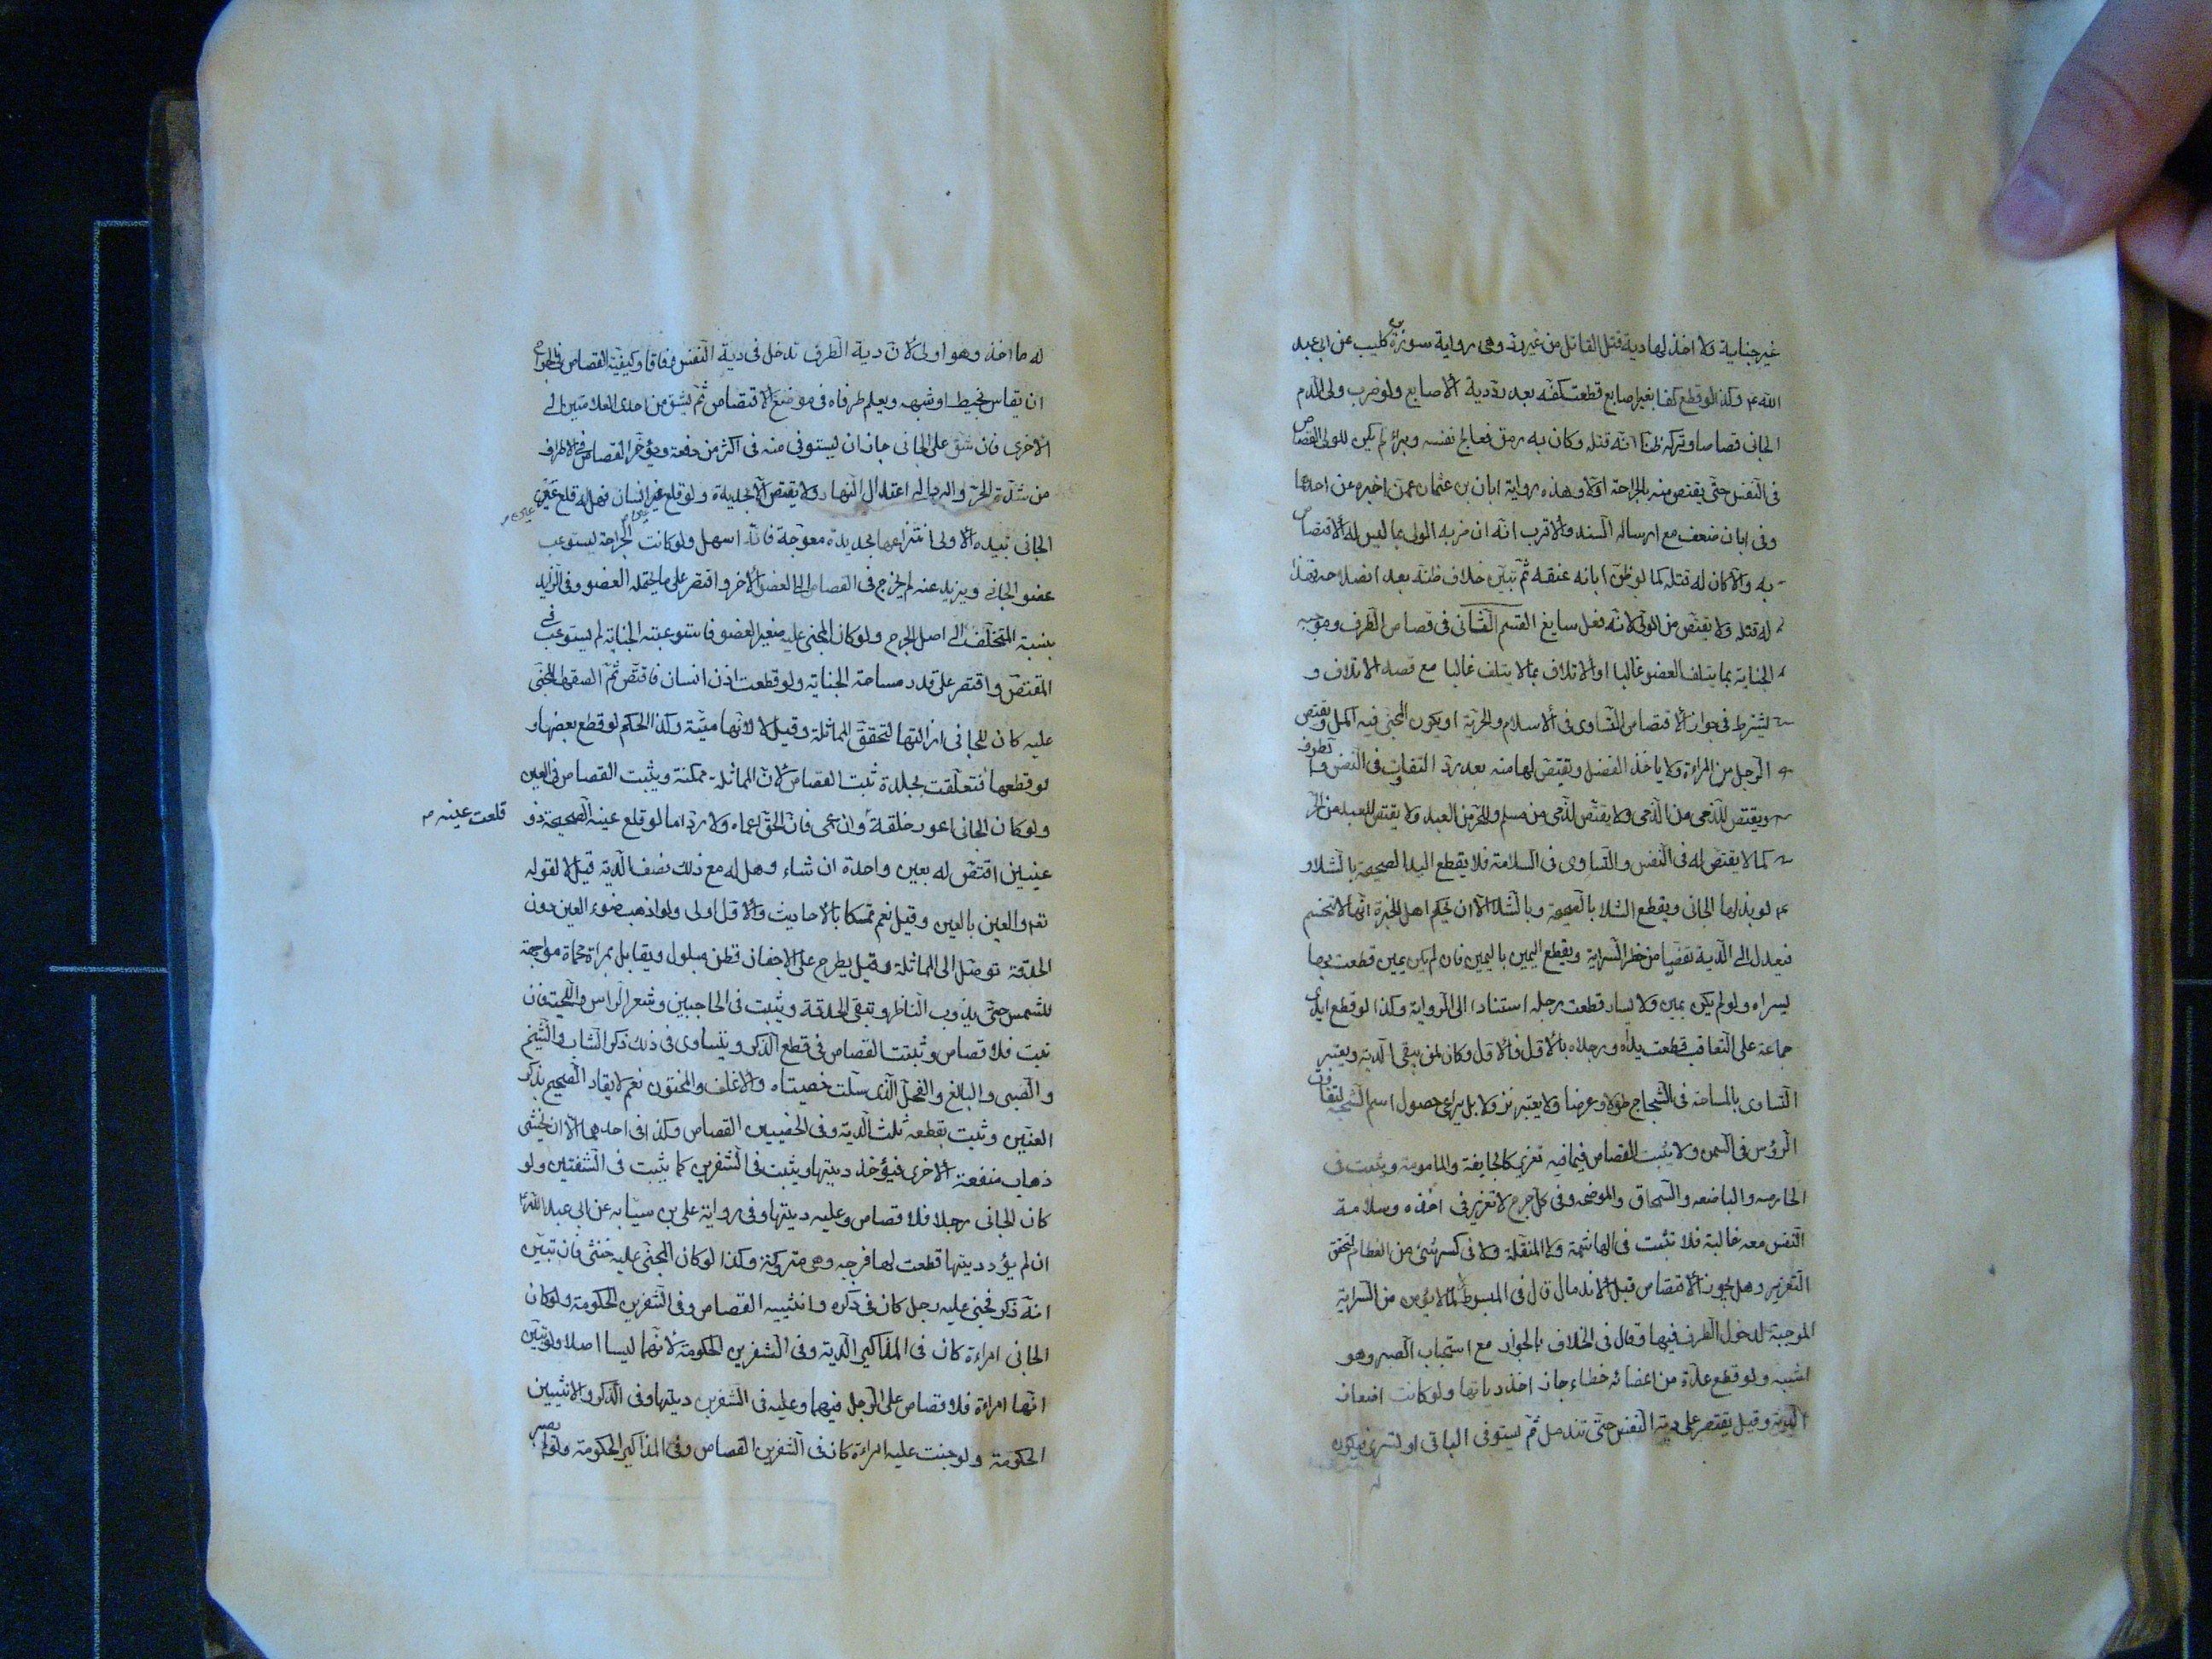 غير جناية ولا اخذ لها دية قتل القاتل من غير رد وهى رواية سورة بن كليب عن ابى عبد
الله ع وكذا لو قطع كفا بغير اصابع قطعت كفه بعد رد دية الاصابع ولو ضرب ولى الدم
الجانى قصاصا وتركه ظنا انه قتله وكان به رمق فعالج نفسه وبرأ لم يكن للولى القصاص
فى النفس حتى يقتص منه بالجراحة اولا وهذه رواية ابان بن عثمان عمن اخبره عن احدهما
وفى ابان ضعف مع ارساله السند والاقرب انه ان ضربه الولى بما ليس له الاقتصاص
به والا كان له قتله كما لو ظن ابانه عنقه ثم تبين خلاف ظنه بعد انصلاحه فهذا
له قتله ولا يقتص من الولى لانه فعل سايغ القسم الثانى فى قصاص الطرف وموجبه
الجناية بما يتلف العضو غالبا او الاتلاف بما لا يتلف غالبا مع قصد الاتلاف و
يشترط فى جواز الاقتصاص التساوى فى الاسلام والحرية او يكون المجنى فيه اكمل ويقتص
الرجل من المراءة ولا ياخذ الفضل ويقتص لها منه بعد رد التفاوت فى النفس والطرف
ويقتص للذمى من الذمى ولا يقتص للذمى من مسلم وللحر من العبد ولا يقتص للعبد من الحر
كما لا يقتص له فى النفس والتساوى فى السلامة فلا يقطع اليد الصحيحة بالشلاء و
لو بذلها الجانى ويقطع الشلا بالصحيحة وبالشلا الا ان يحكم اهل الخبرة انها لا تنحسم
فيعدل الى الدية تفصيا من خطر السراية ويقطع اليمين باليمين فان لم يكن يمين قطعت بها
يسراه ولو لم يكن يمين ولا يسار قطعت رجله استنادا الى الرواية وكذا لو قطع ايدى
جماعة على التعاقب قطعت يداه ورجلاه بالاول فالاول وكان لمن يبقى الدية ويعتبر
التساوى بالمساحة فى الشجاج طولا وعرضا ولا يعتبر نزولا بل يراعى حصول اسم الشجة لتفاوت
الرؤس فى السمن ولا يثبت القصاص فيما فيه تغرير كالجايفة والمامومة ويثبت فى
الحارصه والباضعه والسمحاق والموضحه وفى كل جرح لا تغرير فى اخذه وسلامة
النفس معه غالبة فلا تثبت فى الهاشمة ولا المنقلة ولا فى كسر شئ من العظام لتحقق
التغرير وهل يجوز الاقتصاص قبل الاندمال قال فى المبسوط لا لما لا يؤمن من السراية
الموجبة لدخول الطرف فيها وقال فى الخلاف بالجواز مع استحباب الصبر وهو
اشبه ولو قطع عدة من اعضائه خطاء جاز اخذ دياتها ولو كانت اضعاف
الدية وقيل يقتصر على دية النفس حتى تندمل ثم يستوفى الباقى او تسرى فيكون
له ما اخذ وهو اولى لان دية الطرف تدخل فى دية النفس وفاقا وكيفية القصاص فى الجراح
ان يقاس بخيط او شبهه ويعلم طرفاه فى موضع الاقتصاص ثم يشق من احدى العلامتين الى
الاخرى فان شق على الجانى جاز ان يستوفى منه فى اكثر من دفعة ويؤخر القصاص فى الاطراف
من شدة الحر والبرد الى اعتدال النهار ولا يقتص الا بحديدة ولو قلع عين انسان فهل له قلع عين
الجانى بيده الاولى انتزاعها بحديدة معوجة فانه اسهل ولو كانت الجراحة يستوعب
عضو الجانى ويزيد عنه لم يخرج فى القصاص الى العضو الاخر واقتصر على ما يحتمله العضو وفى الزايد
بنسبة المتخلف الى اصل الجرح ولو كان المجنى عليه صغير العضو فاستوعبته الجناية لم يستوعب فى
المقتص واقتصر على قدر مساحة الجناية ولو قطعت اذن انسان فاقتص ثم الصقها المجنى
عليه كان للجانى ازالتها لتحقق المماثلة وقيل لا لانها ميتة وكذا الحكم لو قطع بعضها و
لو قطعها فتعلقت بجلدة ثبت القصاص لان المماثلة ممكنة ويثبت القصاص فى العين
ولو كان الجانى اعور خلقة وان عمى فان الحق اعماه ولا رد اما لو قلع عينه الصحيحة ذو
قلعت عينه م
عينين اقتص له بعين واحدة ان شاء وهل له مع ذلك نصف الدية قيل لا لقوله
تع والعين بالعين وقيل نعم تمسكا بالاحاديث والاول اولى ولو اذهب ضوء العين دون
الحدقة توصل الى المماثلة وقيل يطرح على الاجفان قطن مبلول ويقابل بمراة محماة مواجهة
للشمس حتى يذوب الناظر وتبقى الحدقة ويثبت فى الحاجبين وشعر الراس واللحية فان
نبت فلا قصاص ويثبت القصاص فى قطع الذكر ويتساوى فى ذلك ذكر الشاب والشيخ
والصبى والبالغ والفحل الذى سلت خصيتاه والاغلف والمختون نعم لا يقاد الصحيح بذكر
العنين ويثبت بقطعه ثلث الدية وفى الخصيتين القصاص وكذا فى احدهما الا ان يخشى
ذهاب منفعة الاخرى فيؤخذ ديتها ويثبت فى الشفرين كما يثبت فى الشفتين ولو
كان الجانى رجلا فلا قصاص وعليه ديتها وفى رواية على بن سيابه عن ابى عبد الله ع
ان لم يؤد ديتها قطعت لها فرجه وهى متروكة وكذا لو كان المجنى عليه خنثى فان تبين
انه ذكر فجنى عليه رجل كان فى ذكره وانثييه القصاص وفى الشفرين الحكومة ولو كان
الجانى امراءة كان فى المذاكير الدية وفى الشفرين الحكومة لانهما ليسا اصلا ولو تبين
انها امراءة فلا قصاص على الرجل فيهما وعليه فى الشفرين ديتها وفى الذكر والانثيين
الحكومة ولو جنت عليه امراءة كان فى الشفرين القصاص وفى المذاكير الحكومة ولو لم يصبر